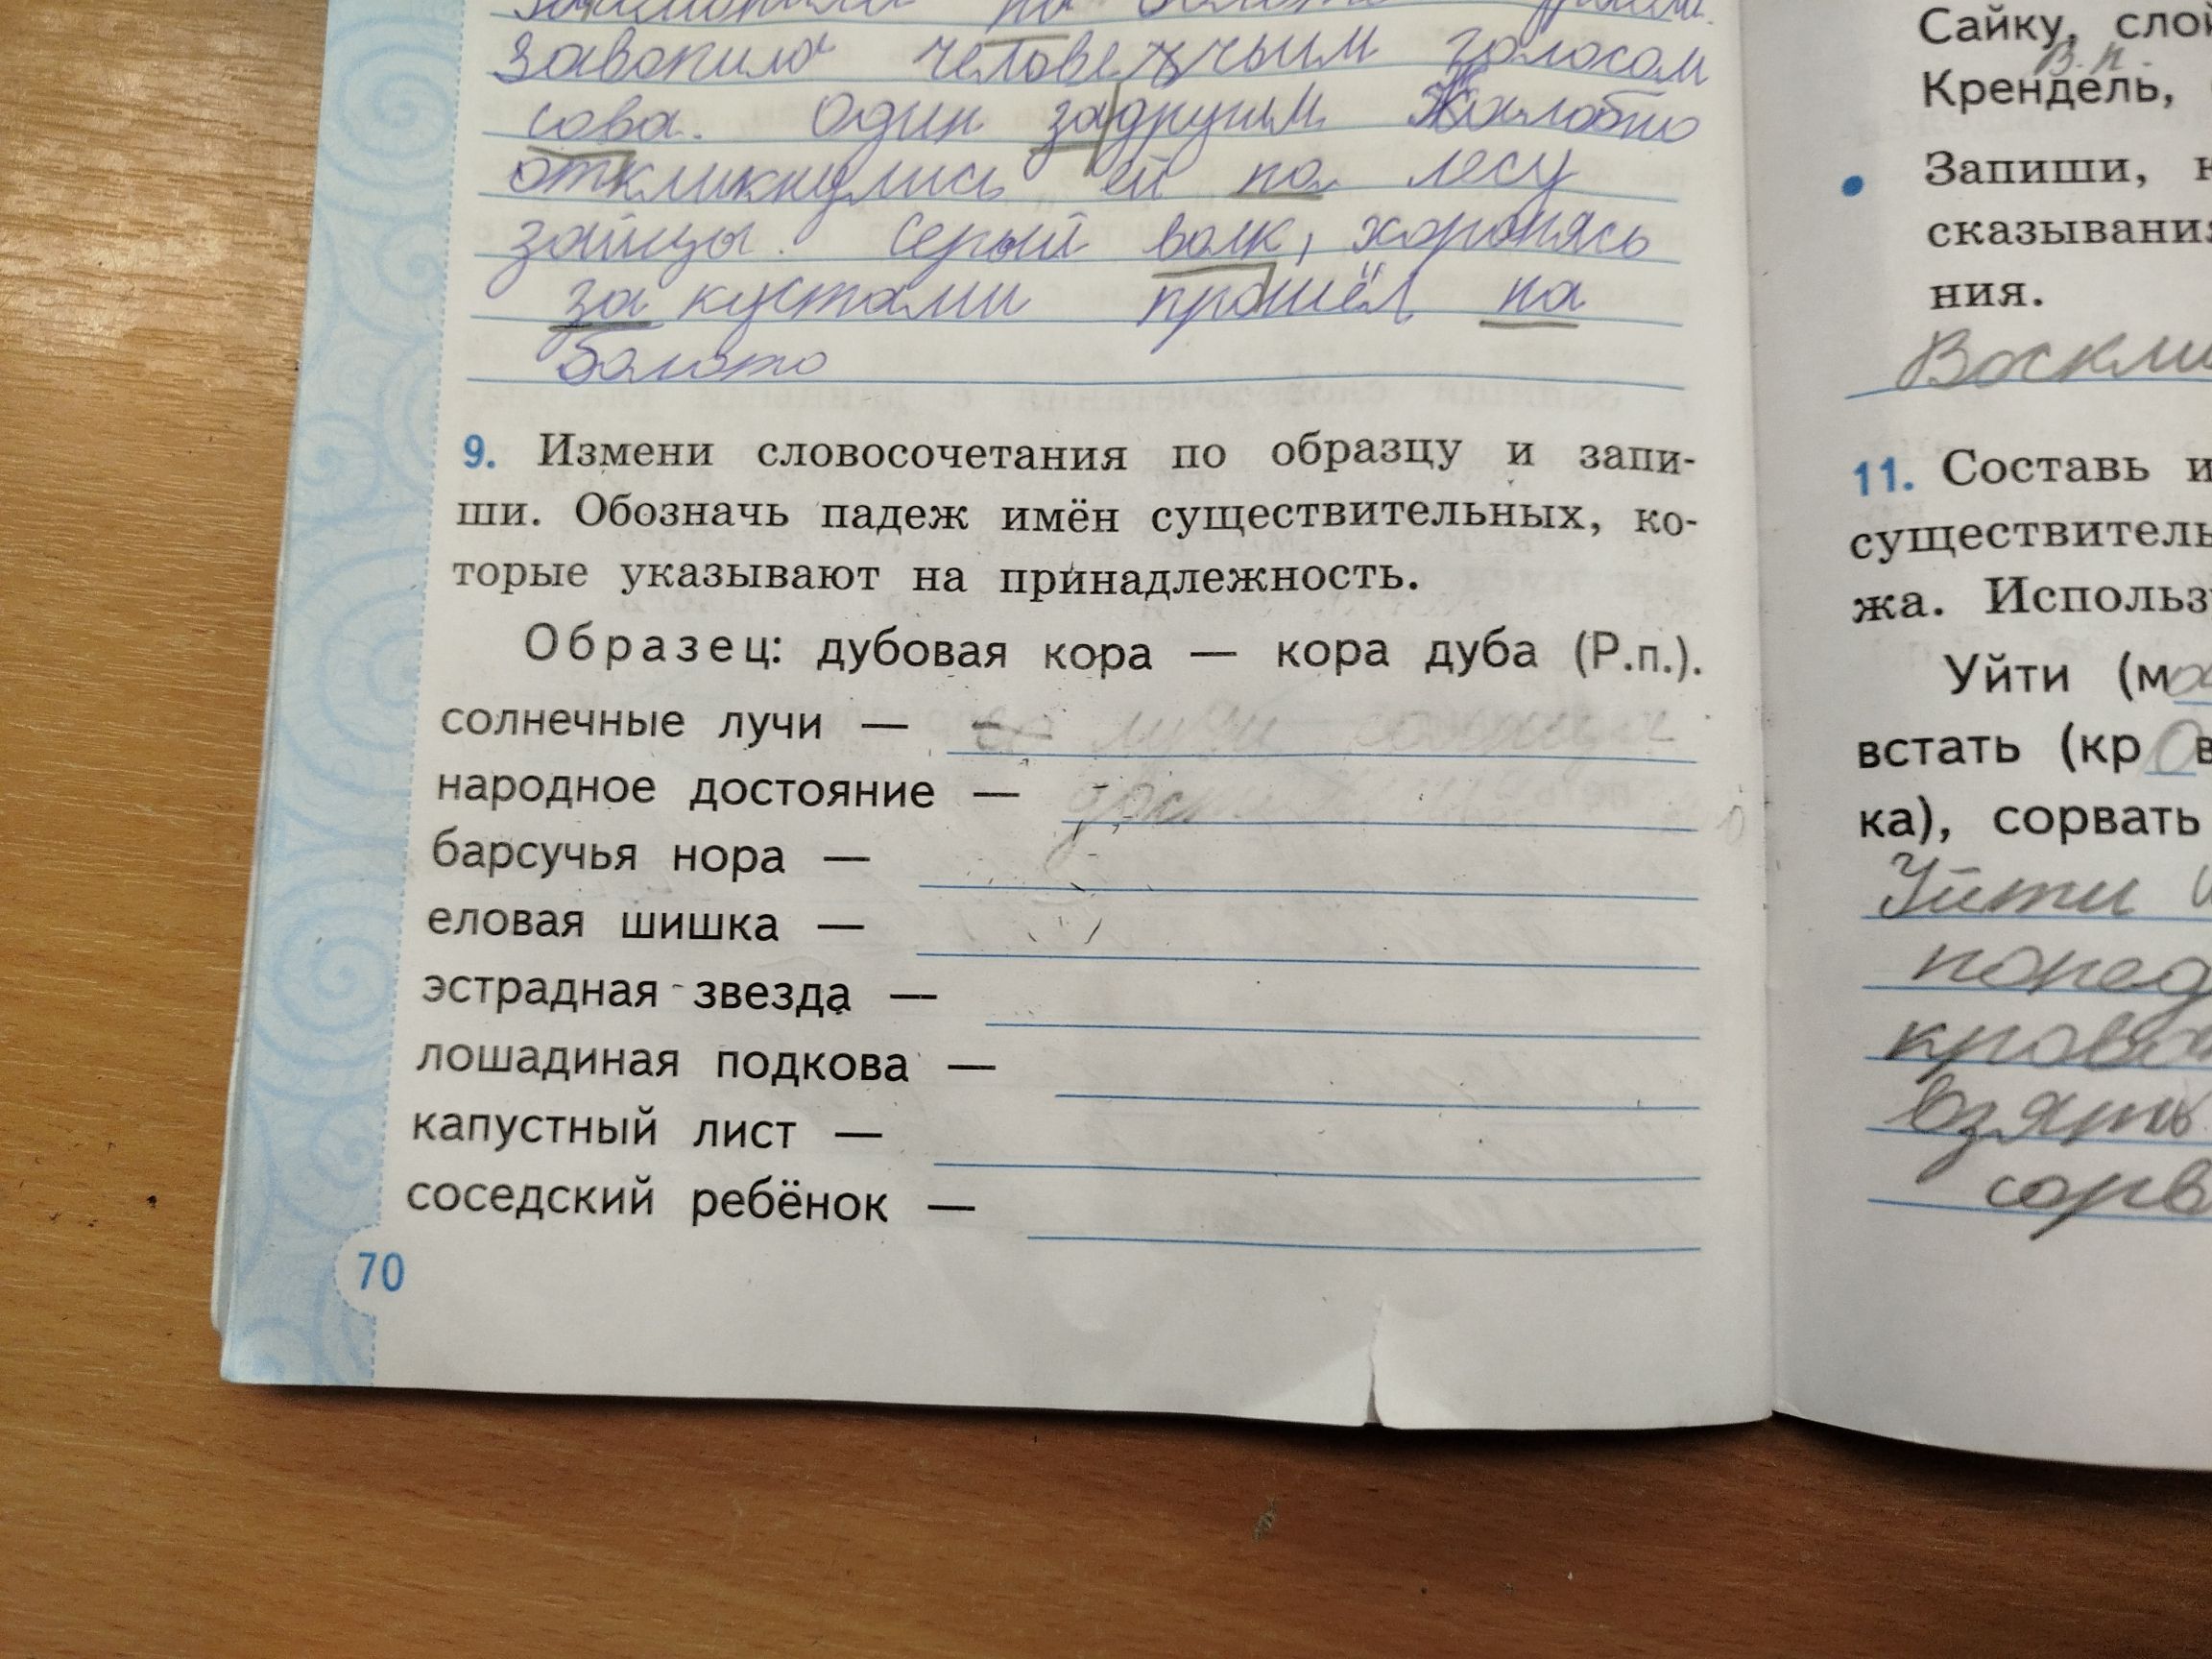 завопила человечьим голосом
сова. Один за другим Жалобно
откликнулись ей по лесу
зайцы. Серый волк, хоронясь
за кустами прошёл на
болото
9. Измени словосочетания по образцу и запи-
ши. Обозначь падеж имён существительных, ко-
торые указывают на принадлежность.
Образец: дубовая кора — кора дуба (Р.п.).
солнечные лучи — лучи
народное достояние —
барсучья нора —
еловая шишка —
эстрадная звезда —
лошадиная подкова —
капустный лист —
соседский ребёнок —
70
Сайку, слой
В.п.
Крендель,
Запиши, к
сказывани
ния.
Воскли
11. Составь и
существитель
жа. Использ
Уйти (мо
встать (кров
ка), сорвать
Уйти и
перед
крова
взять
сорв